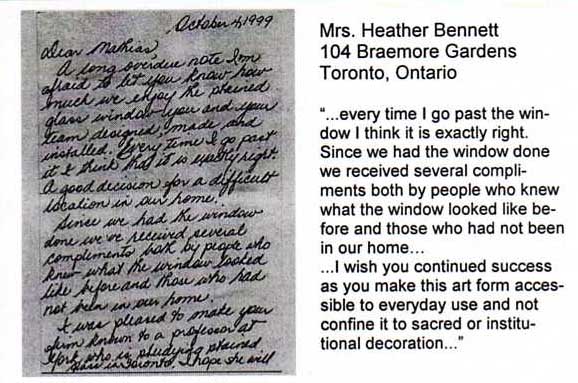 October 4, 1999
Dear Mathias
A long overdue note I'm
afraid to let you know how
much we enjoy the stained
glass window you and your
team designed, made, and
installed. Every time I go past
it I think that it is exactly right.
A good decision for a difficult
location in our home.
Since we had the window
done we've received several
complements both by people who
knew what the window looked
like before and those who had
not been in our home.
I was pleased to make your
firm known to a professor at
York who is studying stained
glass in Toronto. I hope she will
Mrs. Heather Bennett
104 Braemore Gardens
Toronto, Ontario
“...every time I go past the win-
dow I think it is exactly right.
Since we had the window done
we received several compli-
ments both by people who knew
what the window looked like be-
fore and those who had not been
in our home...
...I wish you continued success
as you make this art form acces-
sible to everyday use and not
confine it to sacred or institu-
tional decoration...”